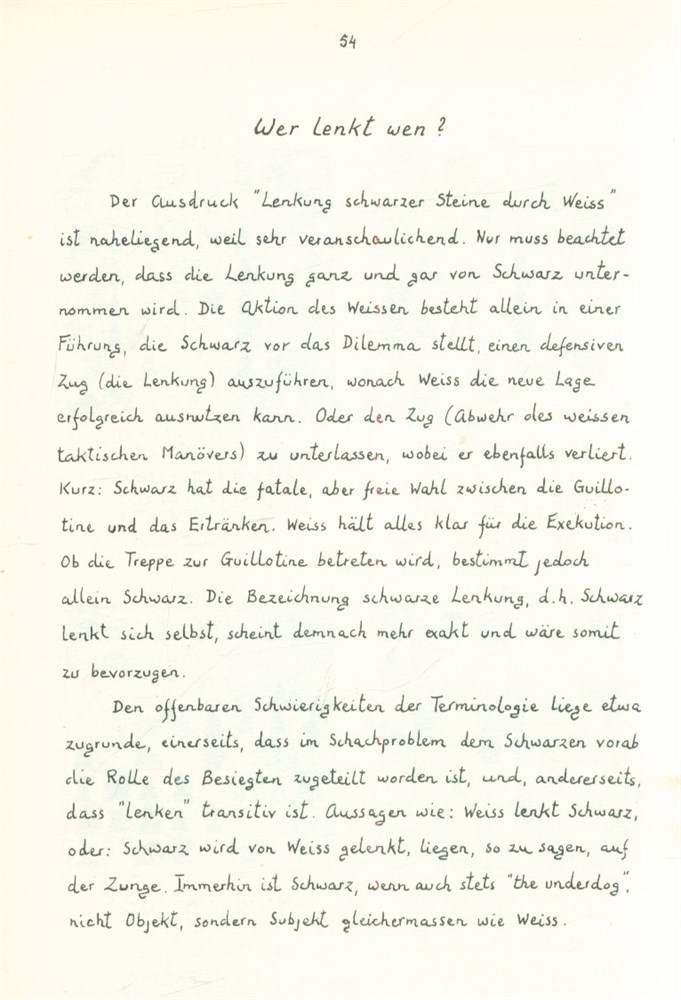 54
Wer lenkt wen?
Der Ausdruck "Lenkung schwarzer Steine durch Weiss"
ist naheliegend, weil sehr veranschaulichend. Nur muss beachtet
werden, dass die Lenkung ganz und gar von Schwarz unter-
nommen wird. Die Aktion des Weissen besteht allein in einer
Führung, die Schwarz vor das Dilemma stellt, einen defensiven
Zug (die Lenkung) auszuführen, wonach Weiss die neue Lage
erfolgreich ausnutzen kann. Oder den Zug (Abwehr des weissen
taktischen Manövers) zu unterlassen, wobei er ebenfalls verliert.
Kurz: Schwarz hat die fatale, aber freie Wahl zwischen die Guillo-
tine und das Ertränken. Weiss hält alles klar für die Exekution.
Ob die Treppe zur Guillotine betreten wird, bestimmt jedoch
allein Schwarz. Die Bezeichnung schwarze Lenkung, d.h. Schwarz
lenkt sich selbst, scheint demnach mehr exakt und wäre somit
zu bevorzugen.
Den offenbaren Schwierigkeiten der Terminologie liege etwa
zugrunde, einerseits, dass im Schachproblem dem Schwarzen vorab
die Rolle des Besiegten zugeteilt worden ist, und, andererseits,
dass "lenken" transitiv ist. Aussagen wie: Weiss lenkt Schwarz,
oder: Schwarz wird von Weiss gelenkt, liegen, so zu sagen, auf
der Zunge. Immerhin ist Schwarz, wenn auch stets "the underdog",
nicht Objekt, sondern Subjekt gleichermassen wie Weiss.